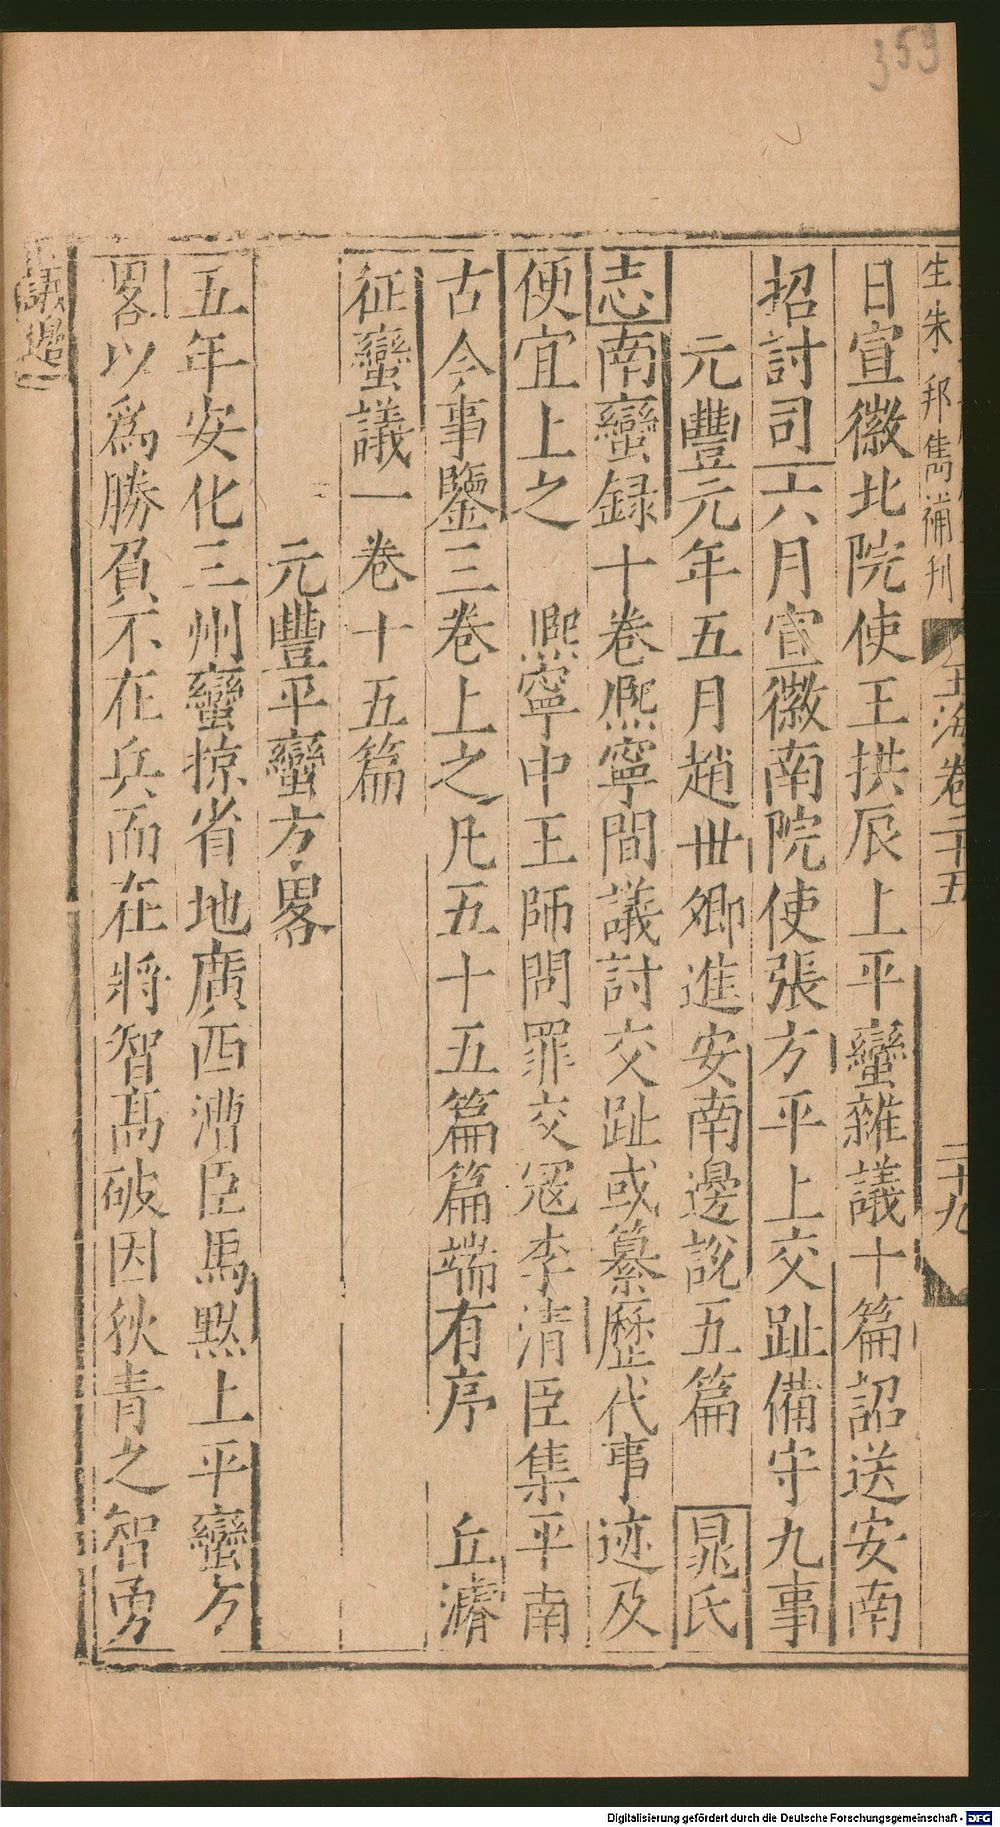 359
生朱 邦儁補刊
玉海卷二十五
二十九
日宣徽北院使王拱辰上平蠻雜議十篇詔送安南
招討司六月宣徽南院使張方平上交趾備守九事
元豐元年五月趙世卿進安南邊說五篇 晁氏
志南蠻録十卷熈寧間議討交趾或纂歷代事迹及
便宜上之 熈寧中王師問罪交冦李清臣集平南
古今事鑒三卷上之凡五十五篇篇端有序 丘濬
征蠻議一卷十五篇
元豐平蠻方畧
五年安化三州蠻掠省地廣西漕臣馬黙上平蠻方
畧以為勝負不在兵而在將智高破因狄青之智勇
議邊
Digitalisierung gefördert durch die Deutsche Forschungsgemeinschaft - DFG